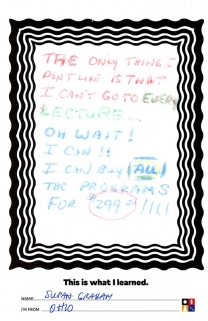 THE ONLY THING I
DON'T LIKE IS THAT
I CAN'T GO TO EVERY
LECTURE...
OH WAIT!
I CAN!!
I CAN BUY (ALL)
THE PROGRAMS
FOR $299!!!!!
This is what I learned.
NAME SUSAN GRAHAM
I'M FROM OHIO